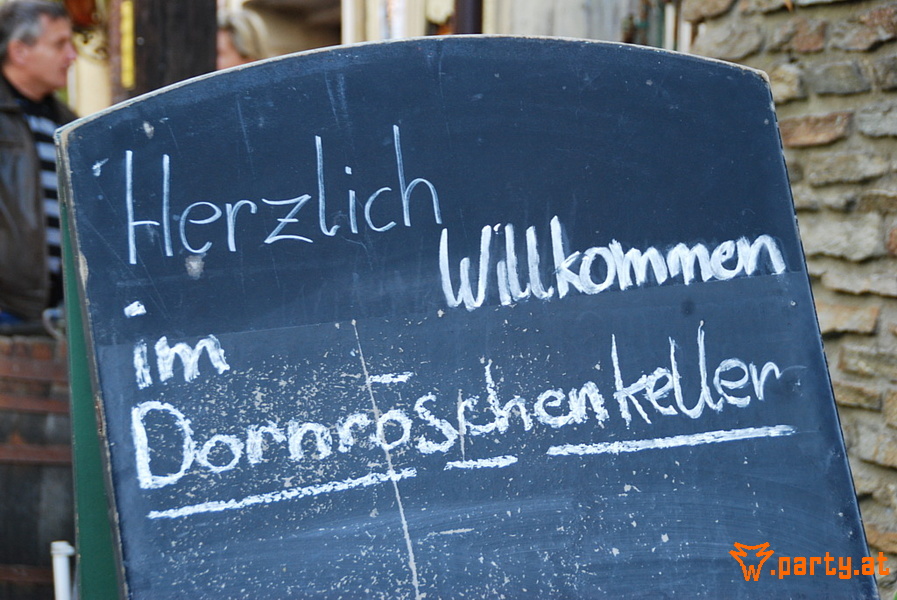 Herzlich
Willkommen
im
Dornröschenkeller
W.party.at